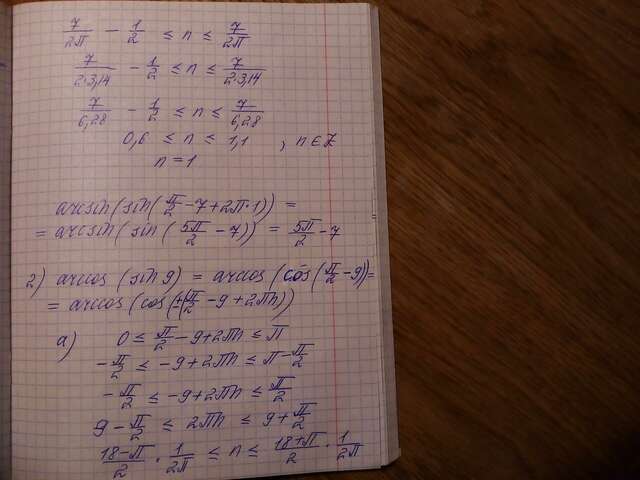 7/2π − 1/2 ≤ n ≤ 7/2π
7/2·3,14 − 1/2 ≤ n ≤ 7/2·3,14
7/6,28 − 1/2 ≤ n ≤ 7/6,28
0,6 ≤ n ≤ 1,1 , n ∈ Z
n = 1
arcsin(sin(π/2 − 7 + 2π·1)) =
= arcsin(sin(5π/2 − 7)) = 5π/2 − 7
2) arccos(sin 9) = arccos(cos(π/2 − 9)) =
= arccos(cos(±(π/2 − 9 + 2πn))
a) 0 ≤ π/2 − 9 + 2πn ≤ π
−π/2 ≤ −9 + 2πn ≤ π − π/2
−π/2 ≤ −9 + 2πn ≤ π/2
9 − π/2 ≤ 2πn ≤ 9 + π/2
18−π/2 · 1/2π ≤ n ≤ 18+π/2 · 1/2π